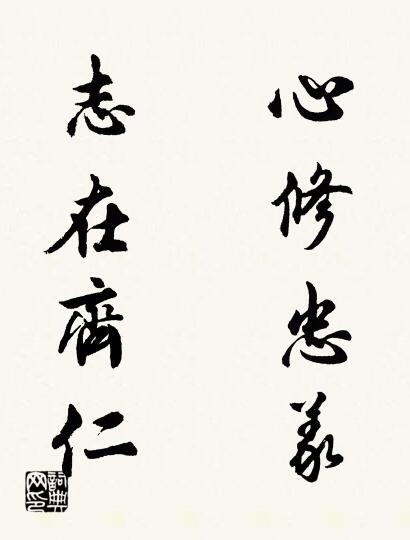 心修忠義
志在齊仁
詞典網印